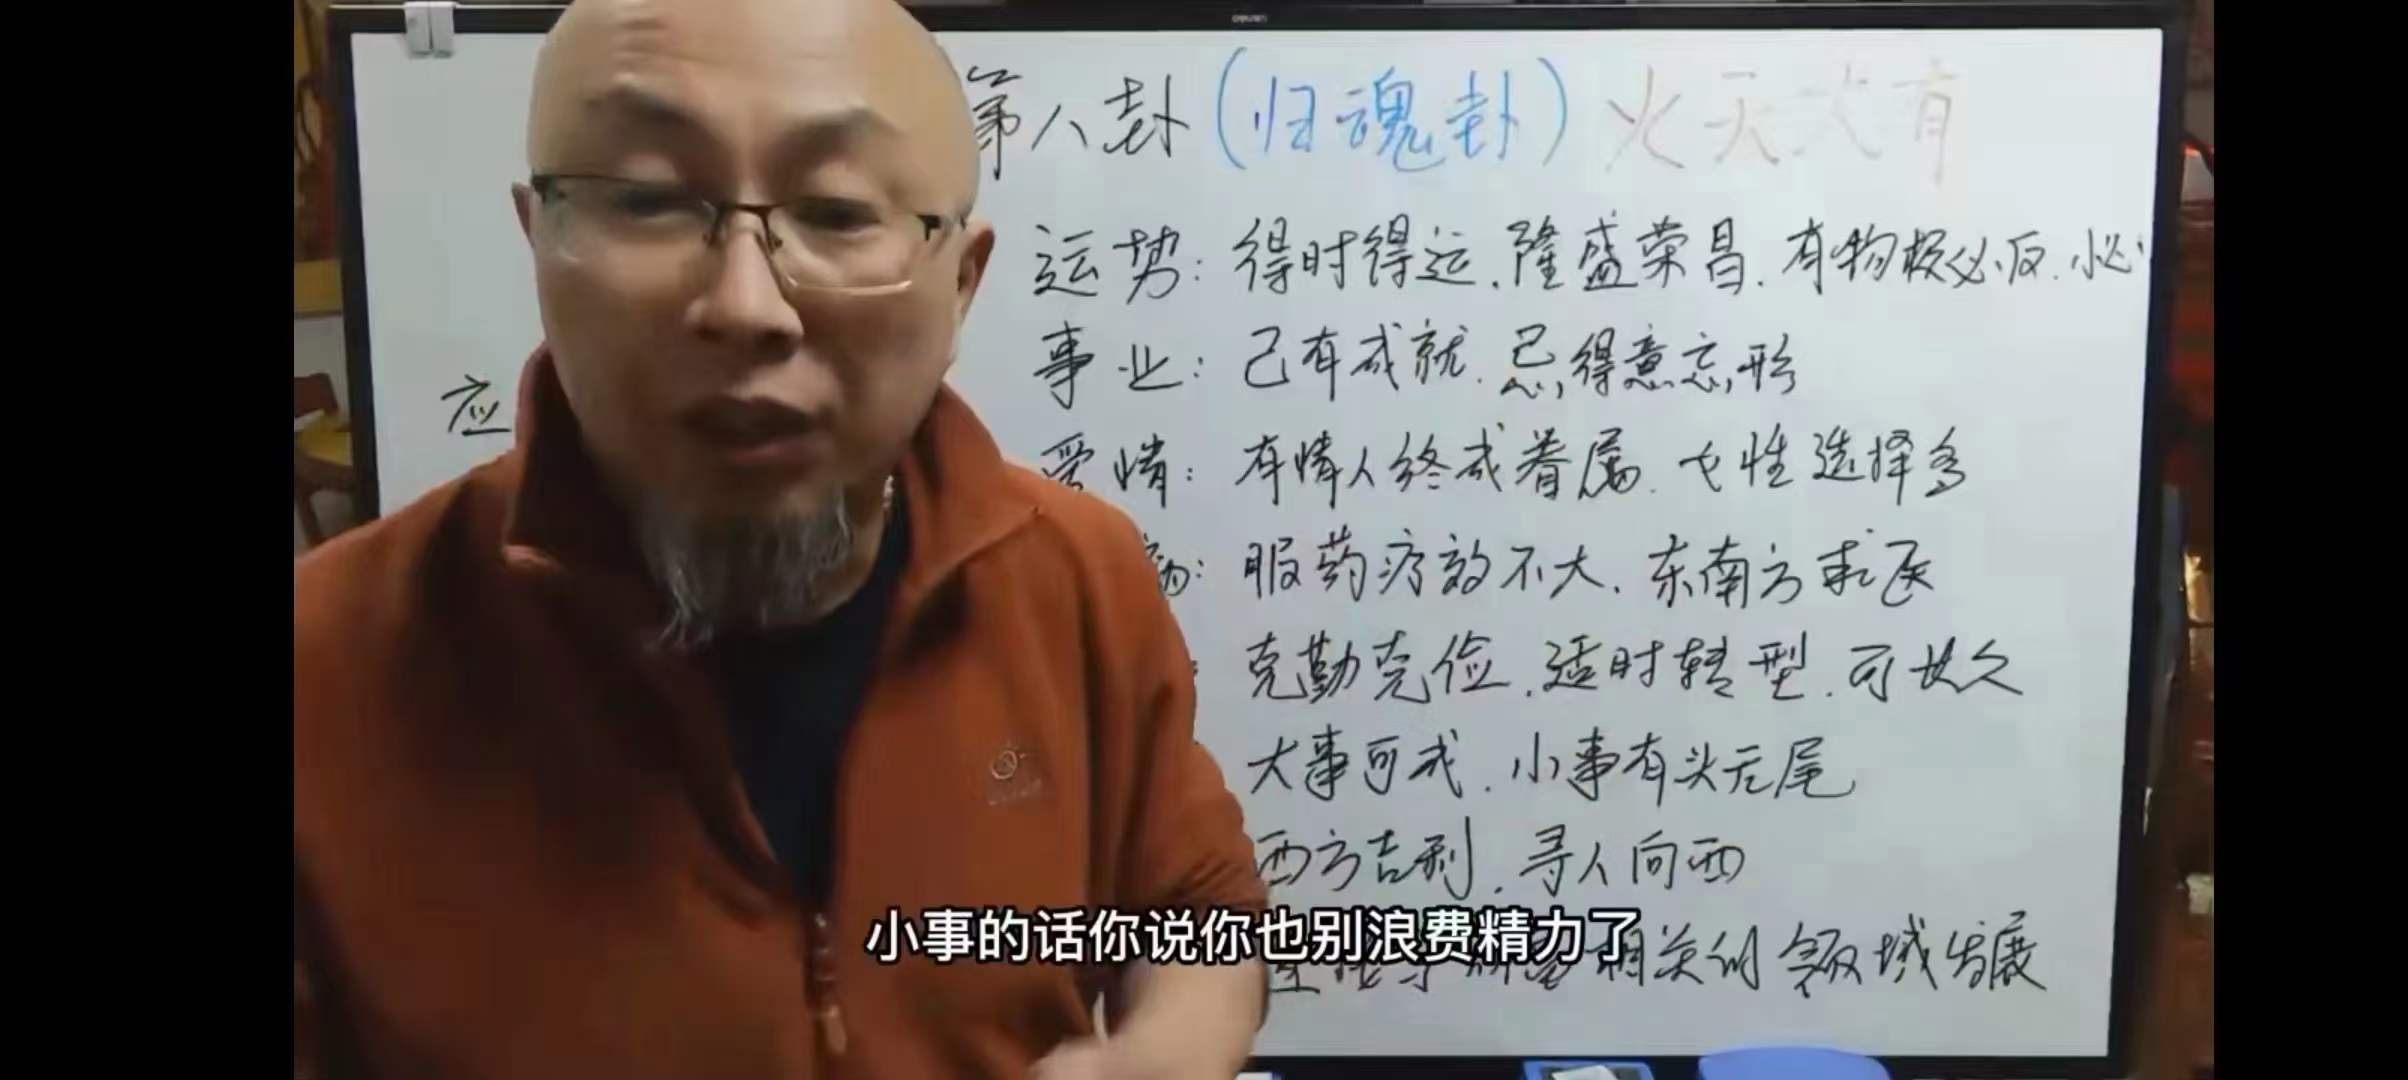 deli
第八卦(归魂卦) 火天大有
运势:得时得运.隆盛荣昌.有物极必反.小心
事业:已有成就.忌得意忘形
应
爱情:有情人终成眷属.女性选择多
病:服药疗效不大.东南方求医
:克勤克俭.适时转型.可长久
大事可成.小事有头无尾
西方吉利.寻人向西
小事的话你说你也别浪费精力了
相关的领域发展